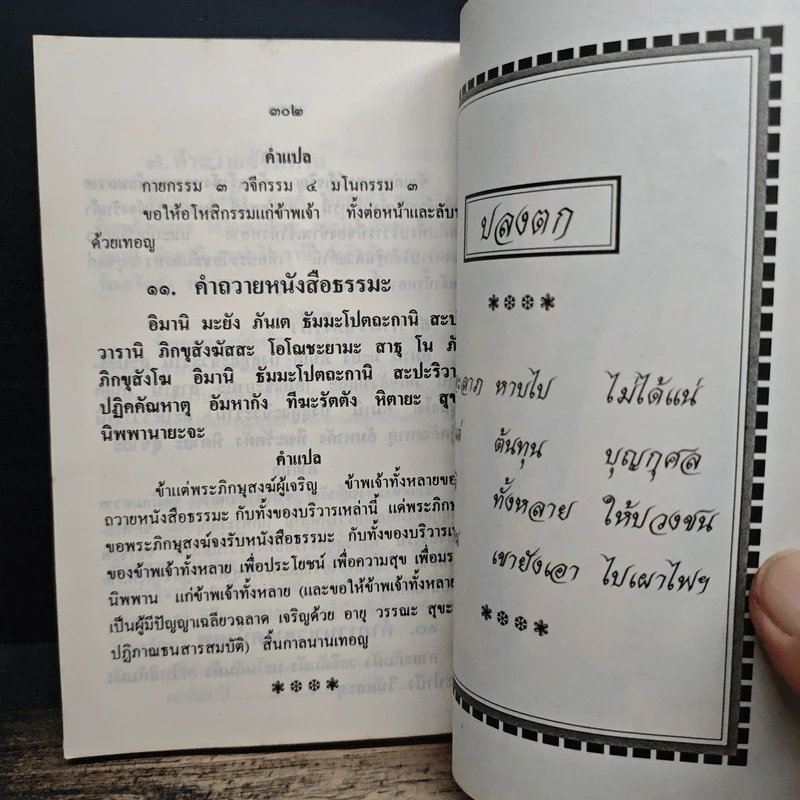 ๓๐๒
คำแปล
กายกรรม ๓ วจีกรรม ๔ มโนกรรม ๓
ขอให้อโหสิกรรมแก่ข้าพเจ้า ทั้งต่อหน้าและลับ
ด้วยเทอญ
๑๑. คำถวายหนังสือธรรมะ
อิมานิ มะยัง ภันเต ธัมมะโปตถะกานิ สะป
วารานิ ภิกขุสังฆัสสะ โอโณชะยามะ สาธุ โน ภั
ภิกขุสังโฆ อิมานิ ธัมมะโปตถะกานิ สะปะริวา
ปฏิคคัณหาตุ อัมหากัง ทีฆะรัตตัง หิตายะ สุข
นิพพานายะจะ
คำแปล
ข้าแต่พระภิกษุสงฆ์ผู้เจริญ ข้าพเจ้าทั้งหลายขอ
ถวายหนังสือธรรมะ กับทั้งของบริวารเหล่านี้ แด่พระภิกษ
ขอพระภิกษุสงฆ์จงรับหนังสือธรรมะ กับทั้งของบริวารเห
ของข้าพเจ้าทั้งหลาย เพื่อประโยชน์ เพื่อความสุข เพื่อมร
นิพพาน แก่ข้าพเจ้าทั้งหลาย (และขอให้ข้าพเจ้าทั้งหลาย
เป็นผู้มีปัญญาเฉลียวฉลาด เจริญด้วย อายุ วรรณะ สุขะ
ปฏิภาณธนสารสมบัติ) สิ้นกาลนานเทอญ
ปลงตก
หาบไป ไม่ได้แน่
ต้นทุน บุญกุศล
ทั้งหลาย ให้ปวงชน
เขายังเอา ไปเผาไฟฯ